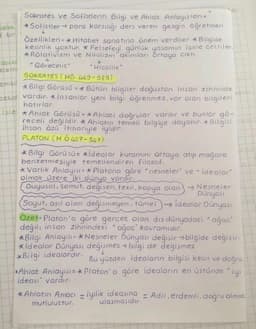 Sokrates ve Sofistlerin Bilgi ve Ahlak Anlayışları
* Sofistler → para karşılığı ders veren gezgin öğretmen
Özellikleri → * Hitabet sanatına önem verirler * Bilgide
kesinlik yoktur. * Felsefeyi günlük yaşamın içine çektiler
* Rölativizm ve Nihilizm akımları ortaya çıktı.
"Görecelik" "Hiçcilik"
SOKRATES (MÖ 469-399)
* Bilgi Görüsü → * Bütün bilgiler doğuştan insan zihninde
vardır. * İnsanlar yeni bilgi öğrenmez, var olan bilgileri
hatırlar.
* Ahlak Görüsü → * Ahlaki doğrular vardır ve bunlar gö-
receli değildir. * Ahlakın temeli bilgiye dayanır. * Bilgili
insan özü itibariyle iyidir.
PLATON (MÖ 427-347)
* Bilgi Görüsü: * İdealar kuramını ortaya atıp mağara
benzetmesiyle temellendiren filozof.
* Varlık Anlayışı: * Platona göre "nesneler" ve "idealar"
olmak üzere iki dünya vardır.
Duyusal, somut, değişen, tekil, kopya olan → Nesneler
Dünyası
Soyut, asıl olan, değişmeyen, tümel → İdealar Dünyası
Özet → Platon'a göre gerçek olan dış dünyadaki "ağaç"
değil, insan zihnindeki "ağaç" kavramıdır.
* Bilgi Anlayışı → * Nesneler Dünyası değişir → bilgide değişir
* İdealar Dünyası değişmez → bilgi de değişmez
* Bilgi idealardır. Bu yüzden ideaların bilgisi kesin ve doğru
* Ahlak Anlayışı → * Platon'a göre ideaların en üstünde "iyi
ideası" vardır.
* Ahlakın Amacı = iyilik ideasına = Adil, erdemli, doğru olmak
mutluluktur. ulaşmalıdır.